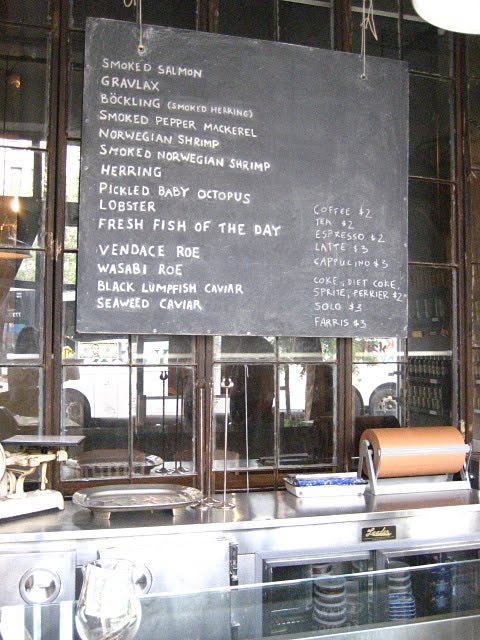 SMOKED SALMON
GRAVLAX
BÖCKLING (SMOKED HERRING)
SMOKED PEPPER MACKEREL
NORWEGIAN SHRIMP
SMOKED NORWEGIAN SHRIMP
HERRING
PICKLED BABY OCTOPUS
LOBSTER
FRESH FISH OF THE DAY
VENDACE ROE
WASABI ROE
BLACK LUMPFISH CAVIAR
SEAWEED CAVIAR
COFFEE $2
TEA $2
ESPRESSO $2
LATTE $3
CAPPUCINO $3
COKE, DIET COKE,
SPRITE, PERRIER $2
SOLO $3
FARRIS $3
Leader